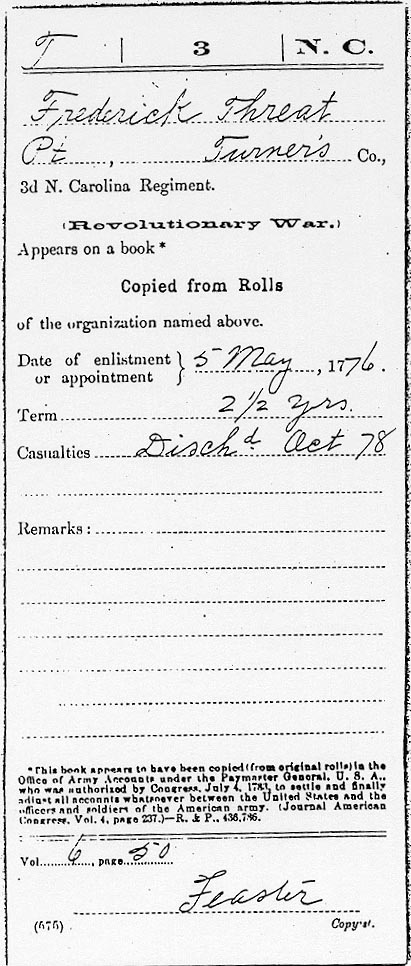 T | 3 | N. C.
Frederick Threat
Pt, Turner's Co.,
3d N. Carolina Regiment.
(Revolutionary War.)
Appears on a book*
Copied from Rolls
of the organization named above.
Date of enlistment } 5 May, 1776.
or appointment
Term 2 1/2 yrs.
Casualties Disch d. Oct 78
Remarks:
*This book appears to have been copied (from original rolls) in the
Office of Army Accounts under the Paymaster General, U. S. A.,
who was authorized by Congress, July 4, 1783, to settle and finally
adjust all accounts whatsoever between the United States and the
officers and soldiers of the American army. (Journal American
Congress, Vol. 4, page 237.)—R. & P., 436,786.
Vol. 6, page 50
Feaster
(575) Copyist.